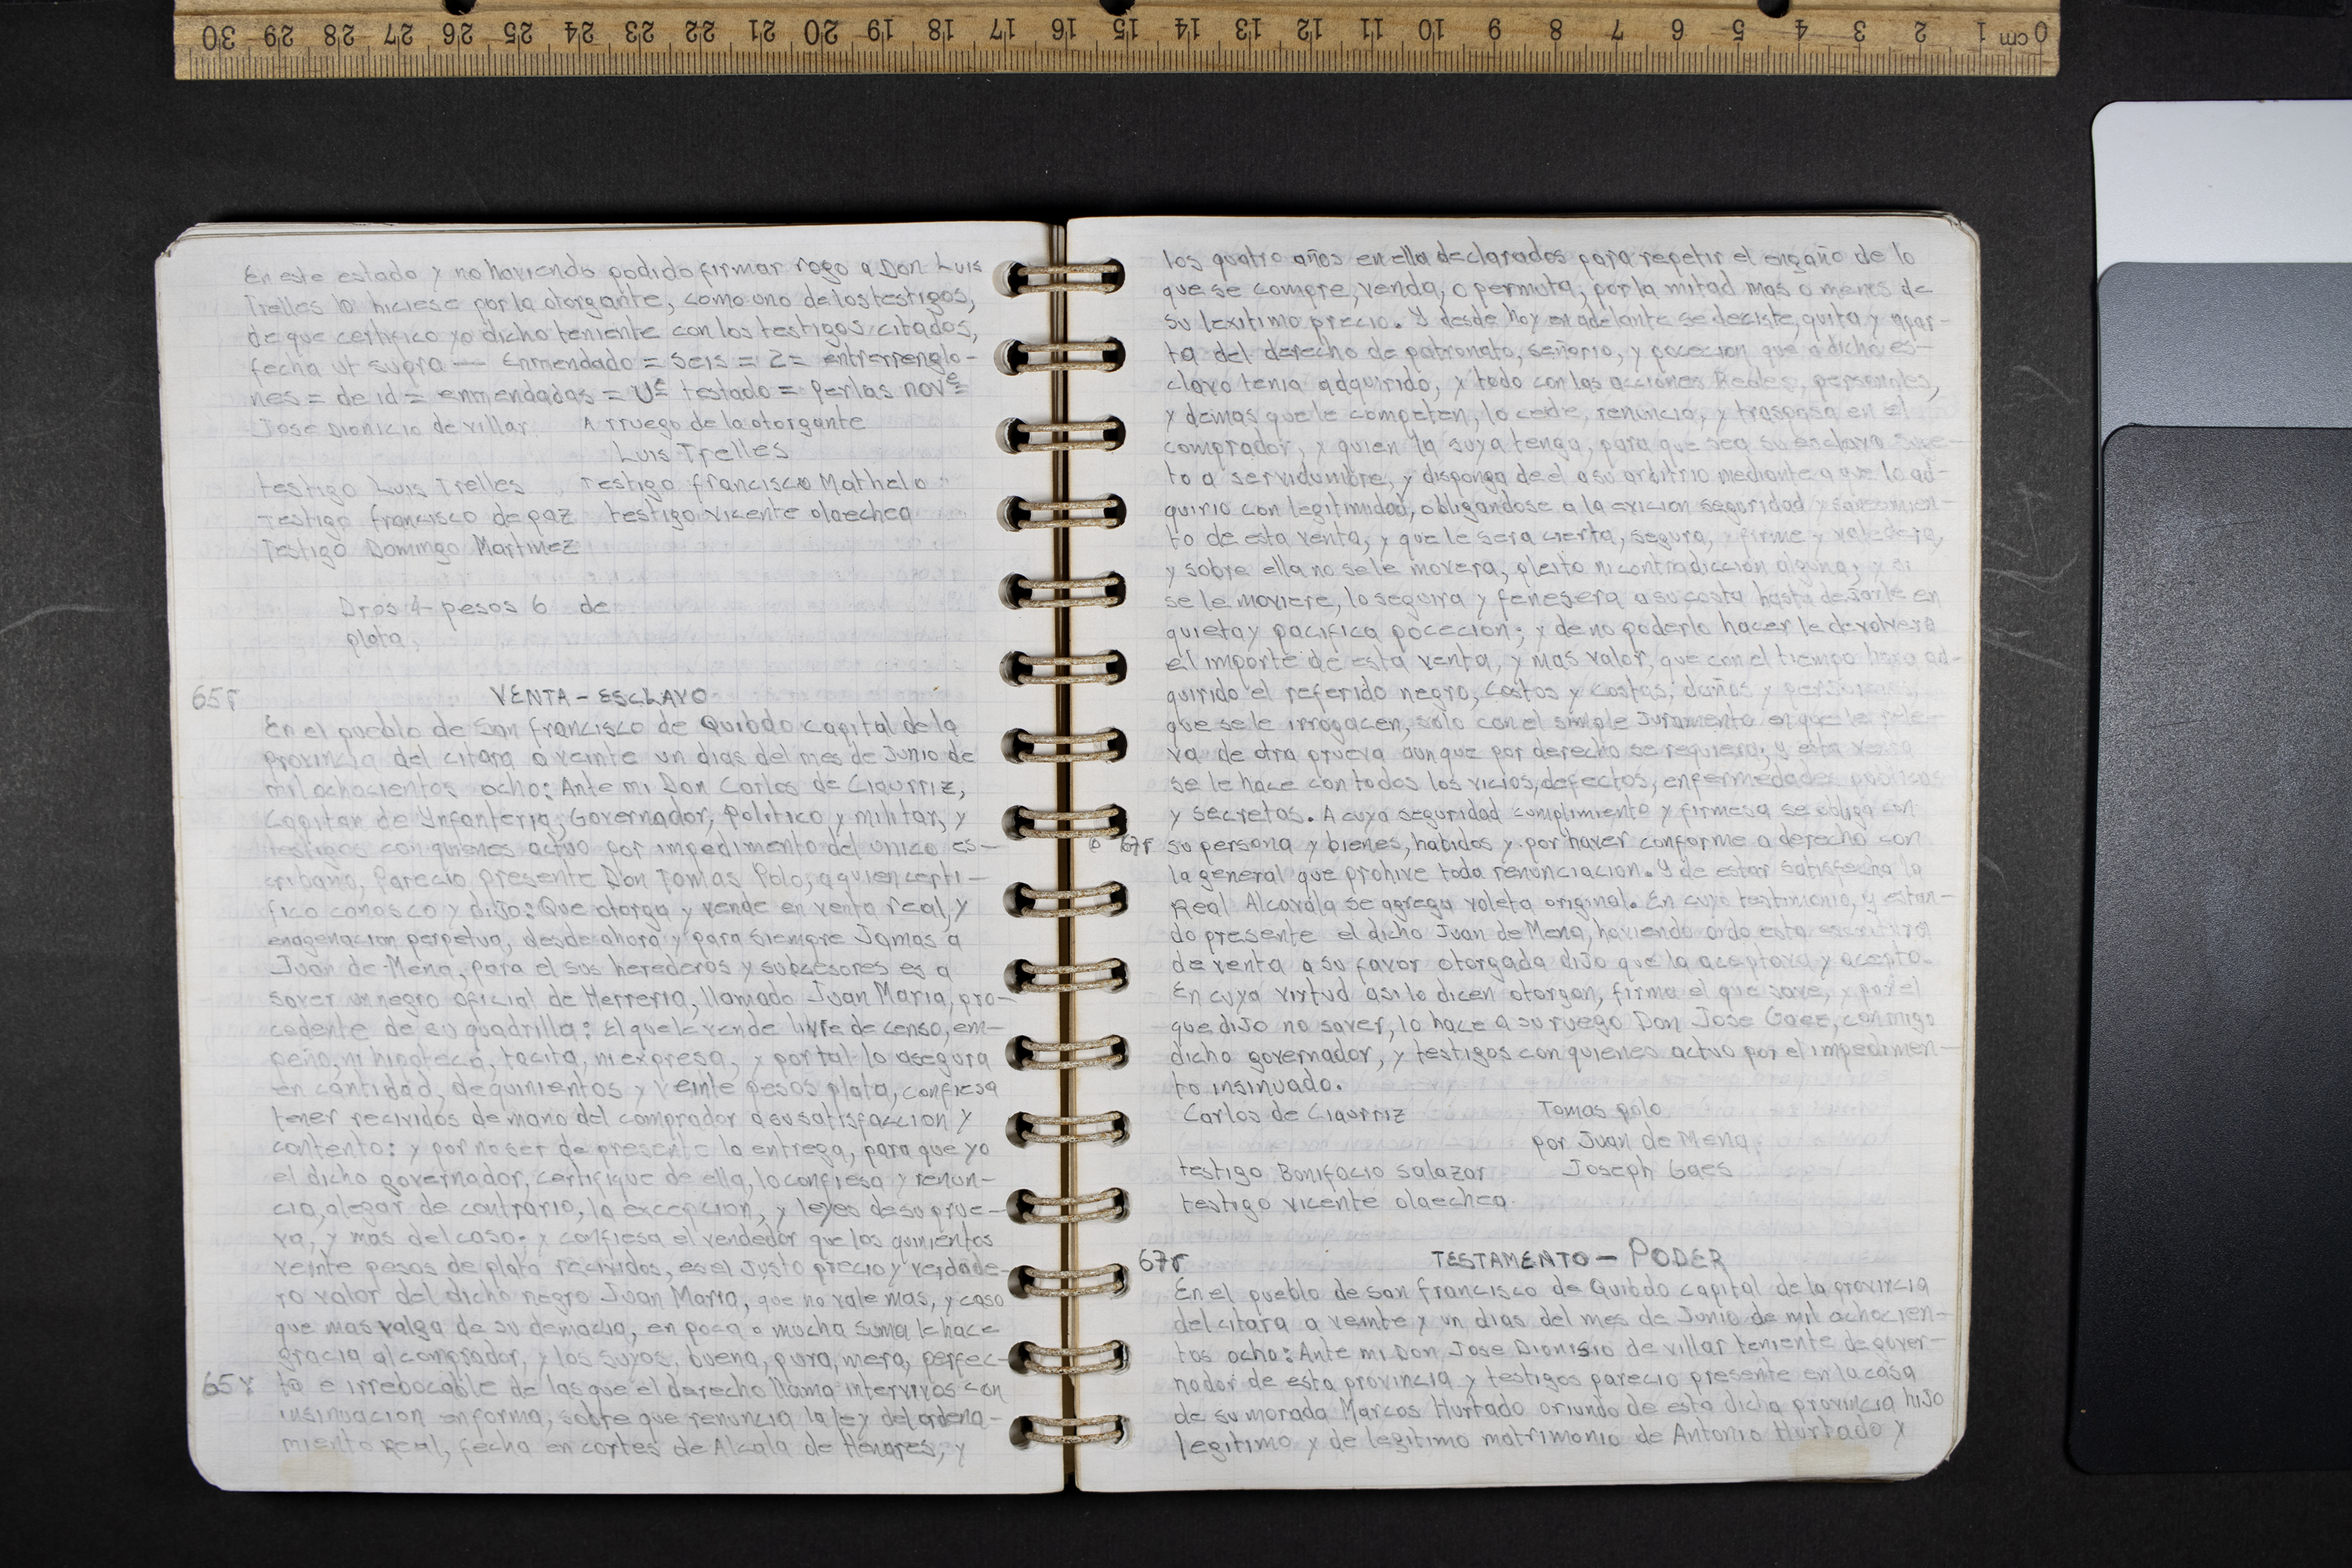 0 cm 1 2 3 4 5 6 7 8 9 10 11 12 13 14 15 16 17 18 19 20 21 22 23 24 25 26 27 28 29 30
En este estado y no haviendo podido firmar rogo a Don Luis
Trelles lo hiciese por la otorgante, como uno de los testigos,
de que certifico yo dicho teniente con los testigos citados,
fecha ut supra — Enmendado = seis = 2 = entrerrenglo-
nes = de id = enmendadas = Ue testado = Perlas nove
Jose Dionicio de villar A rruego de la otorgante
Luis Trelles
testigo Luis Trelles, Testigo francisco Mathelo
Testigo francisco de paz testigo vicente olaechea
Testigo Domingo Martinez
Dros 4 pesos 6 de
plata,
65r VENTA - ESCLAVO
En el pueblo de San francisco de Quibdo capital de la
provincia del citara a veinte un dias del mes de Junio de
mil ochocientos ocho: Ante mi Don Carlos de Ciaurriz,
Capitan de Ynfanteria, Governador, Politico y militar, y
testigos con quienes actuo por impedimento del unico es-
cribano, Parecio presente Don Tomas Polo, a quien certi-
fico conosco y dijo: Que otorga y vende en venta real, y
enagenacion perpetua, desde ahora y para siempre Jamas a
Juan de Mena, para el sus herederos y subcesores es a
saver un negro oficial de Herreria, llamado Juan Maria, pro-
cedente de su quadrilla: El que le vende livre de censo, em-
peño, ni hipoteca, tacita, ni expresa, y por tal lo asegura
en cantidad, de quinientos y veinte pesos plata, confiesa
tener recividos de mano del comprador a su satisfaccion y
contento: y por no ser de presente la entrega, para que yo
el dicho governador, certifique de ella, lo confiesa y renun-
cia, alegar de contrario, la excepcion, y leyes de su prue-
va, y mas del caso; y confiesa el vendedor que los quinientos
veinte pesos de plata recividos, es el Justo precio y verdade-
ro valor del dicho negro Juan Maria, que no vale mas, y caso
que mas valga de su demacia, en poca o mucha suma le hace
gracia al comprador, y los suyos, buena, pura, mera, perfec-
65v ta e irrebocable de las que el derecho llama intervivos con
insinuacion en forma, sobre que renuncia la ley del ordena-
miento Real, fecha en cortes de Alcala de Henares, y
los quatro años en ella declarados para repetir el engaño de lo
que se compre, venda, o permuta, por la mitad mas o menos de
su lexitimo precio. Y desde hoy en adelante se deciste, quita y apar-
ta del derecho de patronato, señorio, y pocecion que a dicho es-
clavo tenia adquirido, y todo con las acciones Reales, personales,
y demas que le competen, lo cede, renuncia, y traspasa en el
comprador, y quien la suya tenga, para que sea su esclavo suge-
to a servidumbre, y disponga de el a su arbitrio mediante a que lo ad-
quirio con legitimidad, obligandose a la evicion seguridad y saneamien-
to de esta venta, y que le sera cierta, segura, firme y valedera,
y sobre ella no se le movera, pleito ni contradiccion alguna; y si
se le moviere, lo seguira y fenesera a su costa hasta dejarle en
quieta y pacifica pocecion; y de no poderlo hacer le devolvera
el importe de esta venta, y mas valor, que con el tiempo haya ad-
quirido el referido negro, costos y costas, daños y perjuicios,
que se le irrogacen, solo con el simple Juramento en que le rele-
va de otra prueva aunque por derecho se requiera; y esta venta
se le hace con todos los vicios, defectos, enfermedades publicas
y secretas. A cuya seguridad cumplimiento y firmesa se obliga con
67r su persona y bienes, habidos y por haver conforme a derecho con
la general que prohive toda renunciacion. Y de estar satisfecha la
Real Alcavala se agrega voleta original. En cuyo testimonio, y estan-
do presente el dicho Juan de Mena, haviendo oido esta escritura
de venta a su favor otorgada dijo que la aceptava y acepto.
En cuya virtud asi lo dicen otorgan, firma el que save, y por el
que dijo no saver, lo hace a su ruego Don Jose Gaez, conmigo
dicho governador, y testigos con quienes actuo por el impedimen-
to insinuado.
Carlos de Ciaurriz Tomas polo
por Juan de Mena,
testigo Bonifacio Salazar Joseph Gaes
testigo vicente olaechea.
67r TESTAMENTO - PODER
En el pueblo de San francisco de Quibdo capital de la provincia
del citara a veinte y un dias del mes de Junio de mil ochocien-
tos ocho: Ante mi Don Jose Dionisio de villar teniente de gover-
nador de esta provincia y testigos parecio presente en la casa
de su morada Marcos Hurtado oriundo de esta dicha provincia hijo
legitimo y de legitimo matrimonio de Antonio Hurtado y